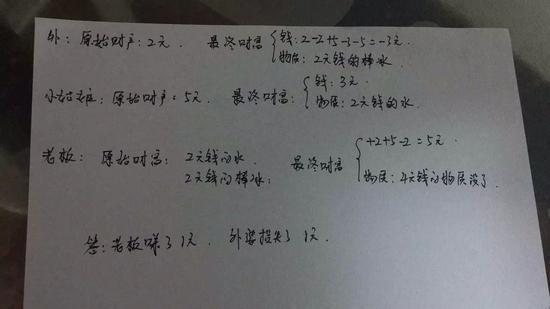 外: 原始财产: 2元. 最终财富 { 钱: 2-2+5-3-5=-3元.
物质: 2元钱的棒冰
小姑姑: 原始财产: 5元. 最终财富: { 钱: 3元
物质: 2元钱的水.
老板: 原始财富: 2元钱的水. 最终财富 { +2+5-2=5元.
2元钱的棒冰: 物质: 4元钱的物质没了.
答: 老板赚了1元. 外婆损失了1元.